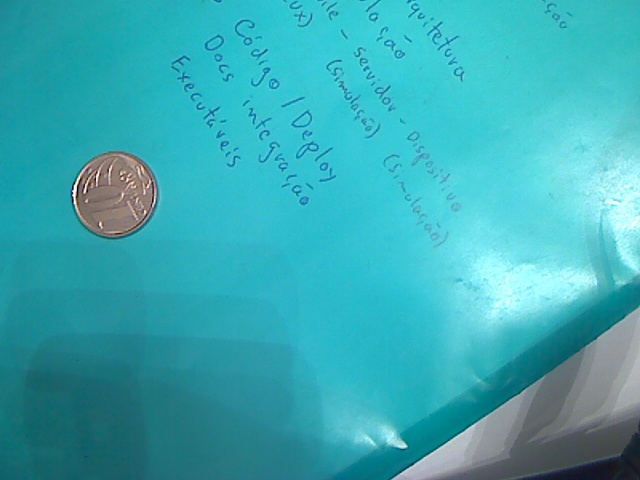 ção
quitetura
lação
ile - servidor - Dispositivo
(simulação) (simulação)
UX)
Código / Deploy
Docs integração
Executáveis